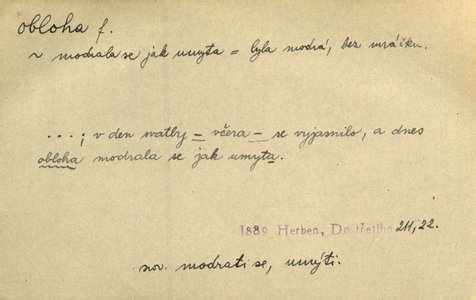 obloha f.
~ modrala se jak umyta = byla modrá, bez mráčku.
...; v den svatby – včera – se vyjasnilo, a dnes
obloha modrala se jak umyta.
1889 Herben, Do třetího 211, 22.
srov. modrati se, umýti.